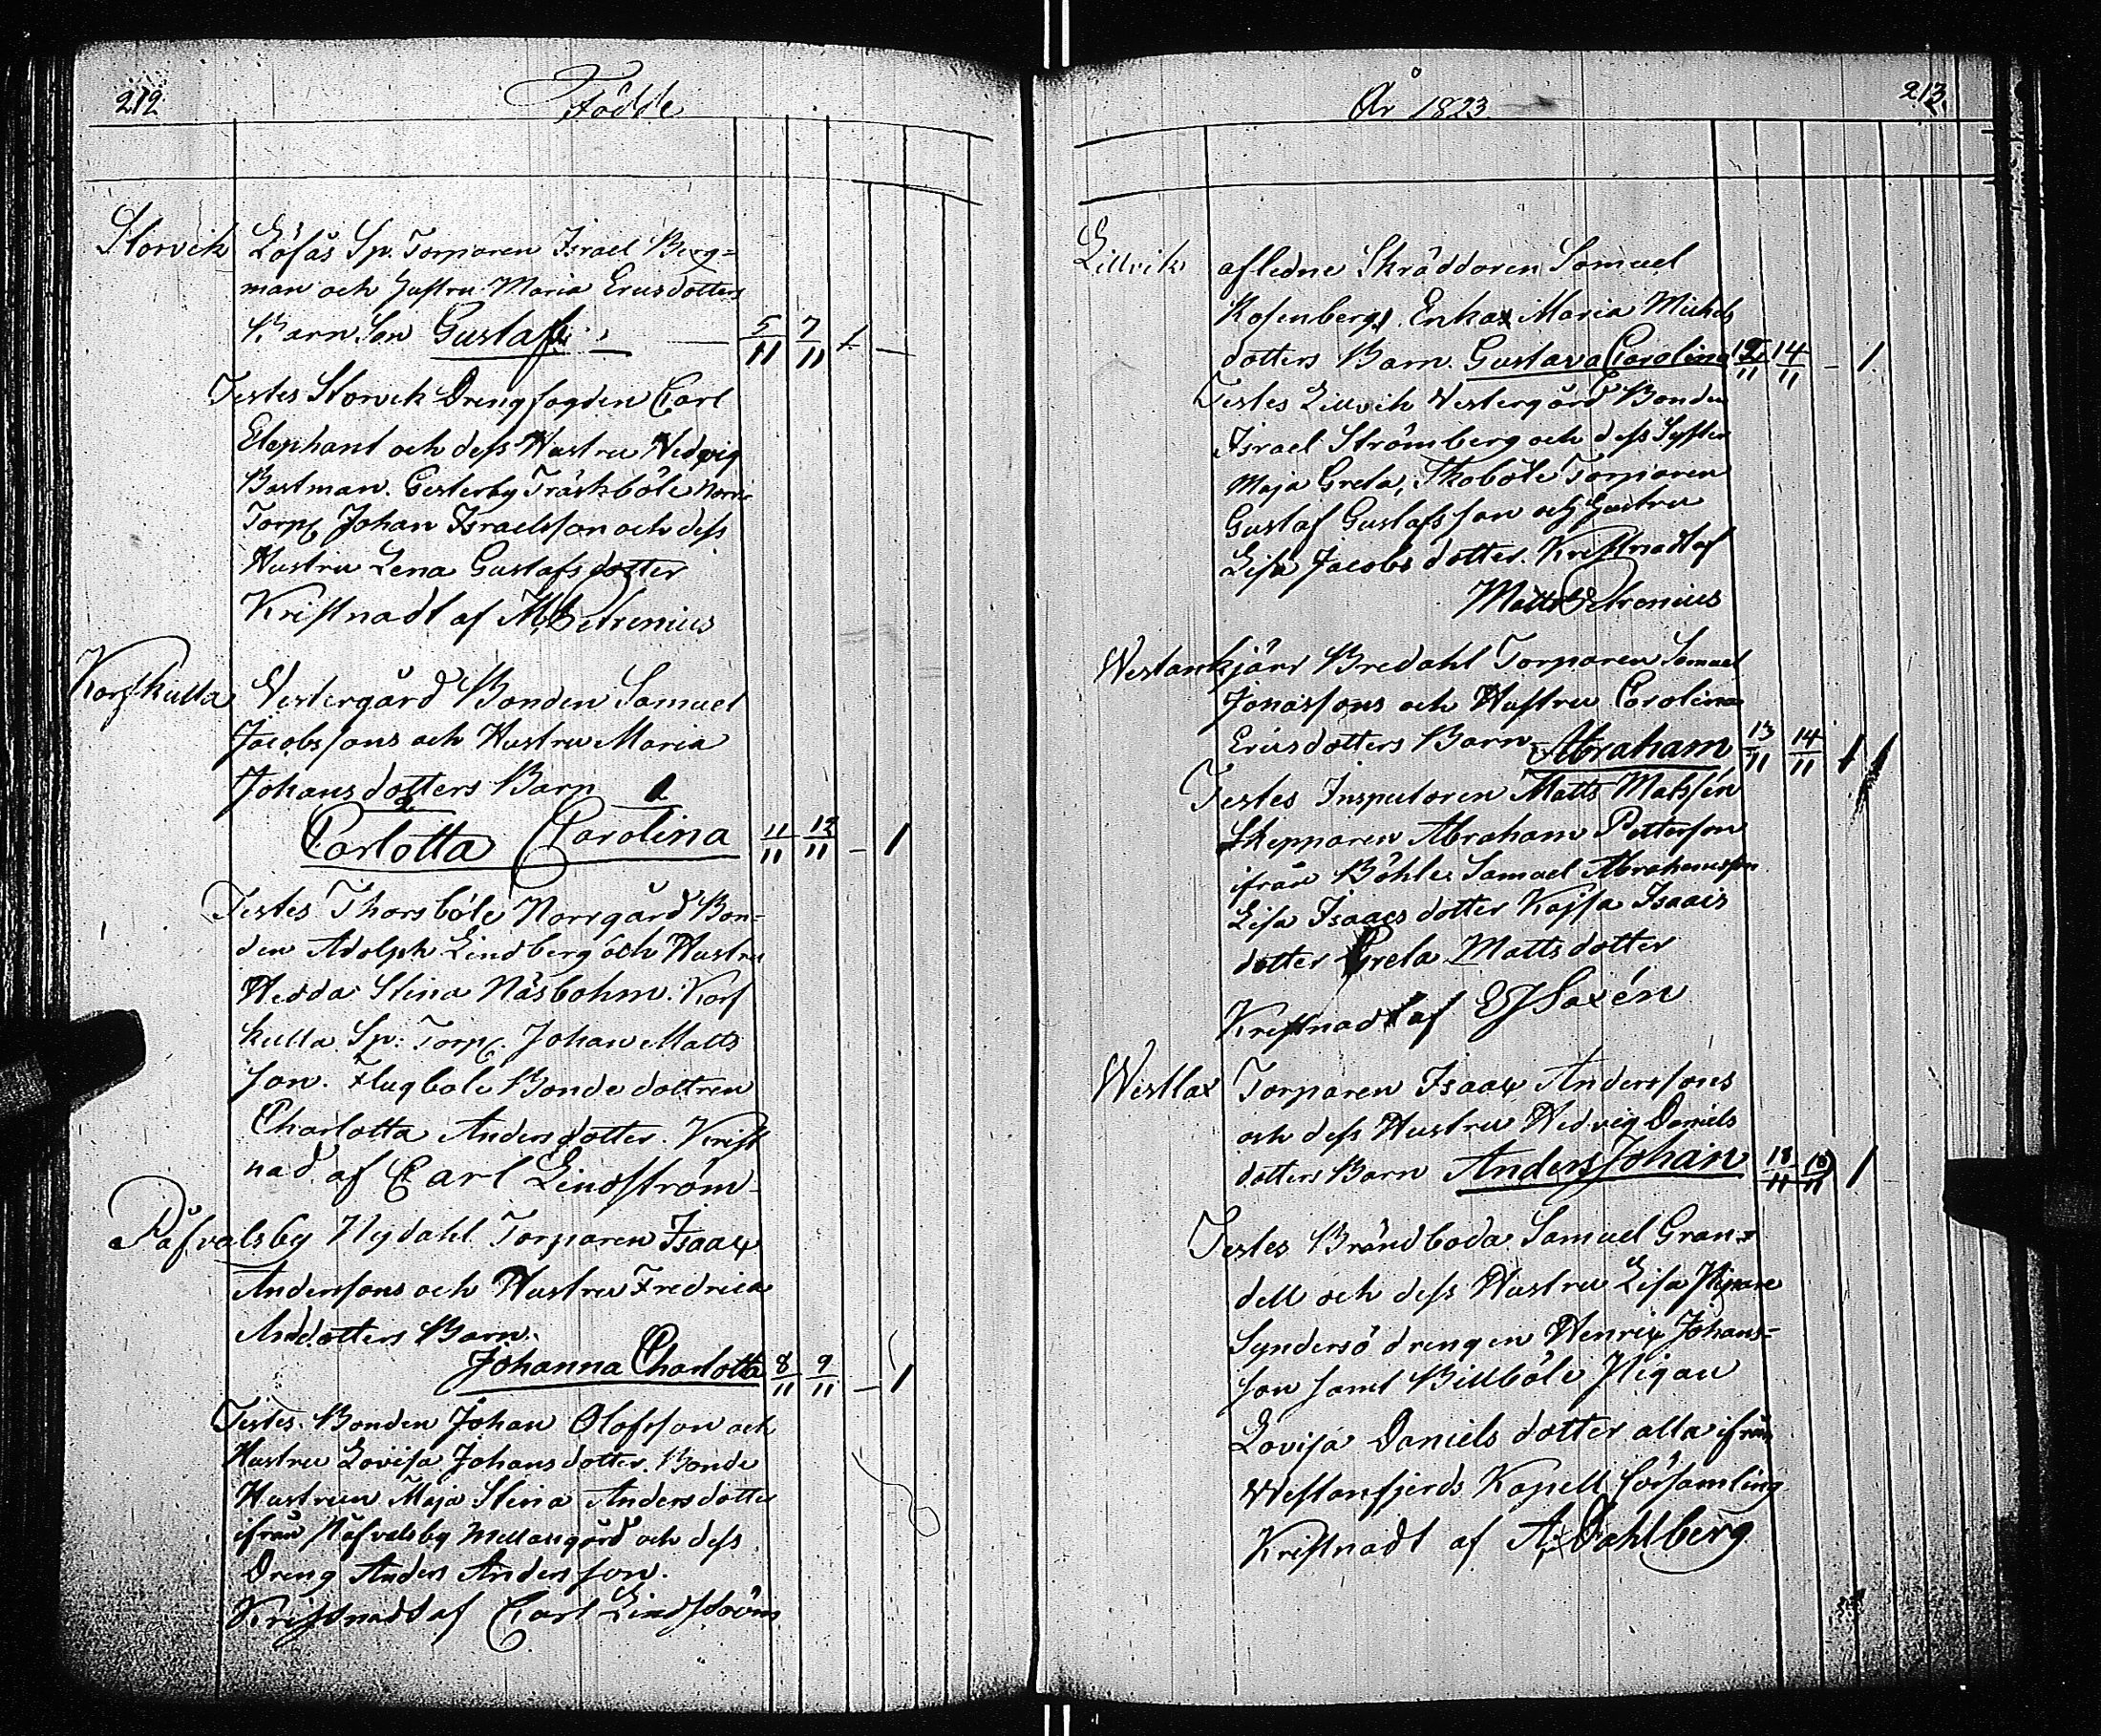 212
Födde
Storvik Löfås Sp. Torparen Israel Berg=
man och Hustru Maria Ericsdotters
Barn Son Gustaf 5/11 7/11 1 —
Testes Storvik Drengfogden Carl
Elephant och dess Hustru Hedvig
Bastman. Gesterby Träskböle Norr
Torp. Johan Israelsson och dess
Hustru Lena Gustafsdotter
Kristnadt af M Petrenius
Korskulla Vestergård Bonden Samuel
Jacobssons och Hustru Maria
Johansdotters Barn
2 1
Carlotta Carolina 11/11 12/11 — 1
Testes Thorsböle Norrgård Bon=
den Adolph Lindberg och Hustru
Hedda Stina Näsbohm. Kors
kulla Sp: Torp. Johan Matts
son. Flugböle Bonde dottren
Charlotta Andersdotter. Krist
nad af Carl Lindström
Påfvalsby Nydahl Torparen Isaac
Anderssons och Hustru Fredrica
And.dotters Barn.
Johanna Charlotta 8/11 9/11 — 1
Testes. Bonden Johan Olofsson och
Hustru Lovisa Johansdotter. Bonde
Hustrun Maja Stina Andersdotter
ifrån Påfvalsby Mellangård och dess
Dreng Anders Andersson.
Kristnadt af Carl Lindström
År 1823.
213
Lillvik afledne Skräddaren Samuel
Rosenbergs Enkas Maria Michels
dotters Barn. Gustava Carolina 12/11 14/11 — 1
Testes Lillvik Vestergård Bonden
Israel Strömberg och dess Syster
Maja Greta, Skoböle Torparen
Gustaf Gustafsson och Hustru
Lisa Jacobsdotter. Kristnadt af
Matts Petrenius
Westankjärr Bredahl Torparen Samuel
Jonassons och Hustru Carolina
Ericsdotters Barn Abraham 13/11 14/11 1
Testes Inspectoren Matts Matssén
Skepparen Abraham Petterson
ifrån Böhle Samuel Abrahamsson
Lisa Isaacsdotter Kajsa Isaacs
dotter Greta Mattsdotter
Kristnadt af Saxén
Westlax Torparen Isaac Anderssons
och dess Hustru Hedvig Daniels
dotters Barn Anders Johan 18/11 18/11 1
Testes Brändboda Samuel Gran=
dell och dess Hustru Lisa
Syndersö drengen Henric Johans=
son samt Billböle Pigan
Lovisa Daniels dotter alla ifrån
Westanfjerds Kapell församling
Kristnadt af A. Dahlberg